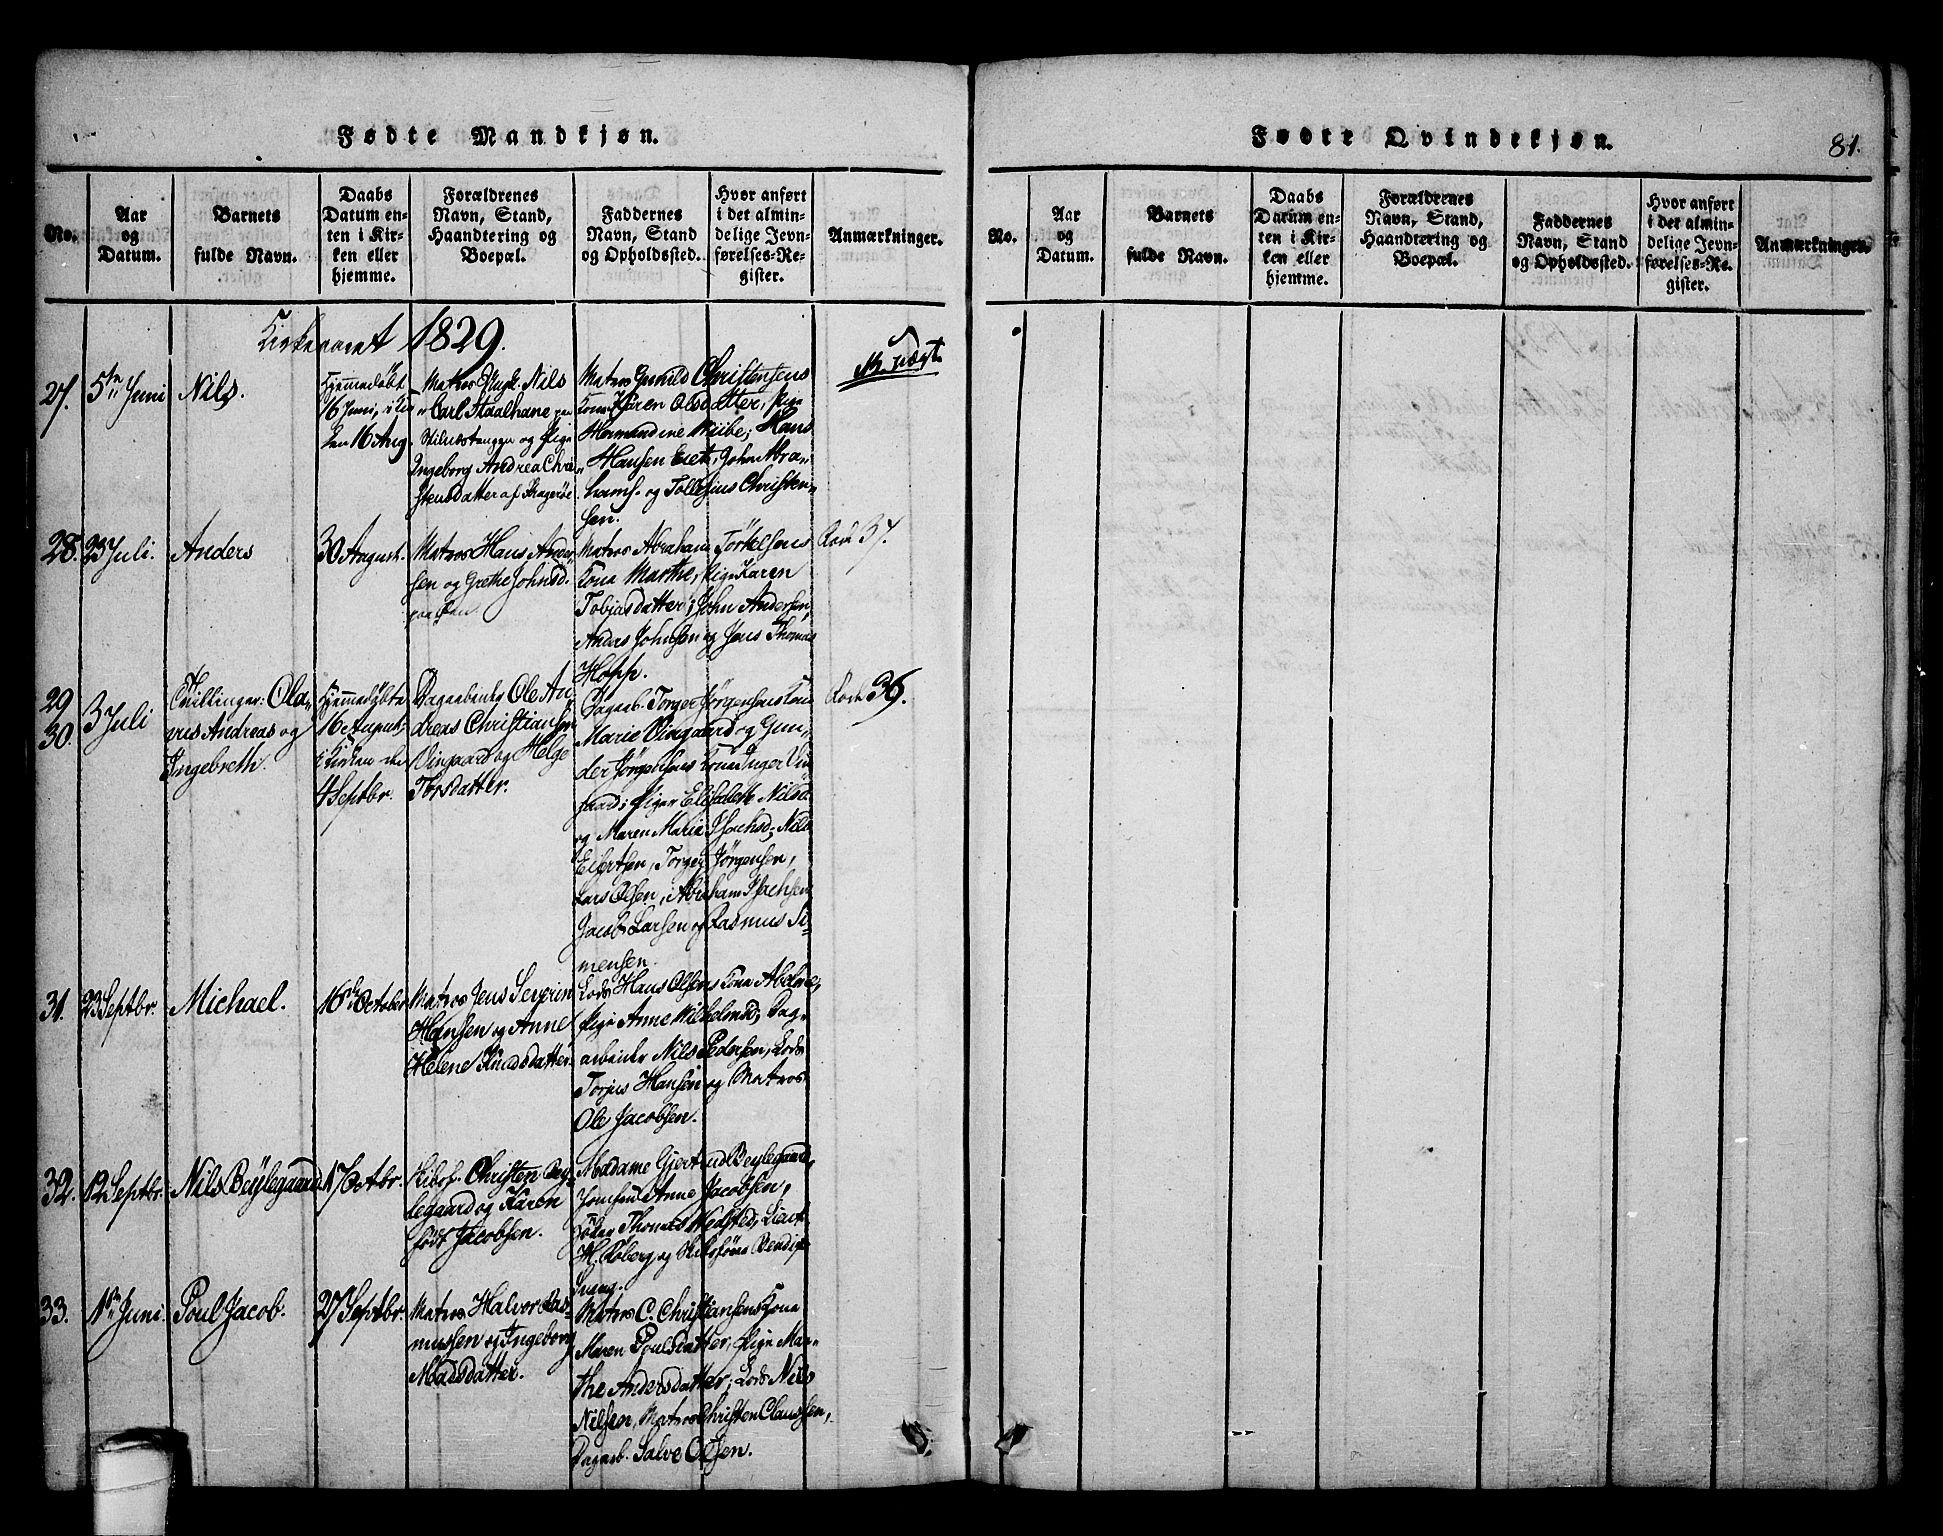 Fødte Mandkjøn.
No.
Aar
og
Datum.
Barnets
fulde Navn.
Daabs
Datum en-
ten i Kir-
ken eller
hjemme.
Forældrenes
Navn, Stand,
Haandtering og
Boepæl.
Faddernes
Navn, Stand
og Opholdssted.
Hvor anført
i det almin-
delige Jevn-
førelses-Re-
gister.
Anmærkninger.
Kirkeaaret 1829.
27.
5te Juni
Nils.
Hjemmedøbt
16 Juni, i Kir-
ken 16 Aug.
Matros Nils
Carl Staalhane paa
og Pige
Ingeborg Andrea Chri-
stensdatter af Kragerøe
Matros Gunild Christensens
Kone Karen Olsdatter, Pige
Hermandine Wiibe; Hans
Hansen John Abra-
hams. og Tollefius Christen-
sen.
28.
23 Juli.
Anders
30 August.
Matros Hans Ander-
sen og Grethe Johnsd.
Matros Abraham Törkelsens
Kona Marthe, Pige Karen
Tobiasdatter; John Andersen,
Anders Johnsen og Jens Thomas
Hopp.
Rode 37.
29
30.
3 Juli
Tvillinger: Ola-
vus Andreas og
Ingebreth.
Hjemmedøbte
16 August,
i Kirken den
4 Septbr.
Dagarbeider Ole An-
dreas Christiansen
Viingaard og Helge
Torsdatter.
Dagarb. Torger Jörgensens Kone
Marie Viingaard og Gun-
der Jörgensens Kone Inger Vin-
gaard; Piger Elisabeth Nilsd.
og Maren Maria Isachsd; Nils
Eilertsen, Torger Jörgensen,
Lars Olsen, Abraham Isachsen
Jacob Larsen og Rasmus Si-
mensen.
Rode 36.
31.
23 Septbr.
Michael.
16de October
Matros Jens Severin
Hansen og Anne
Helene Knudsdatter
Lods Hans Olsens Kona Abelone,
Pige Anne Wilhelmsd; Dag-
arbeider Nils Pedersen, Lods
Torjus Hansen og Matros
Ole Jacobsen.
32.
12 Septbr.
Nils Beylegaard
17 Octbr.
Christen Bey-
legaard og Karen
født Jacobsen.
Madame Gjertrud Beylegaard,
Jomfru Anne Jacobsen,
Thomas Wedsted,
H. Roberg og
33.
1te Juni.
Poul Jacob.
27 Septbr.
Matros Halvor Ras-
mussen og Ingeborg
Madsdatter.
Matros C. Christiansens Kona
Maren Poulsdatter, Pige Mar-
the Andersdatter; Lods Nils
Nilsen, Matros Christen Claussen,
Dagarb. Salve Olsen.
Fødte Qvindekjøn.
81.
No.
Aar
og
Datum.
Barnets
fulde Navn.
Daabs
Datum en-
ten i Kir-
ken eller
hjemme.
Forældrenes
Navn, Stand,
Haandtering og
Boepæl.
Faddernes
Navn, Stand
og Opholdssted.
Hvor anført
i det almin-
delige Jevn-
førelses-Re-
gister.
Anmærkninger.